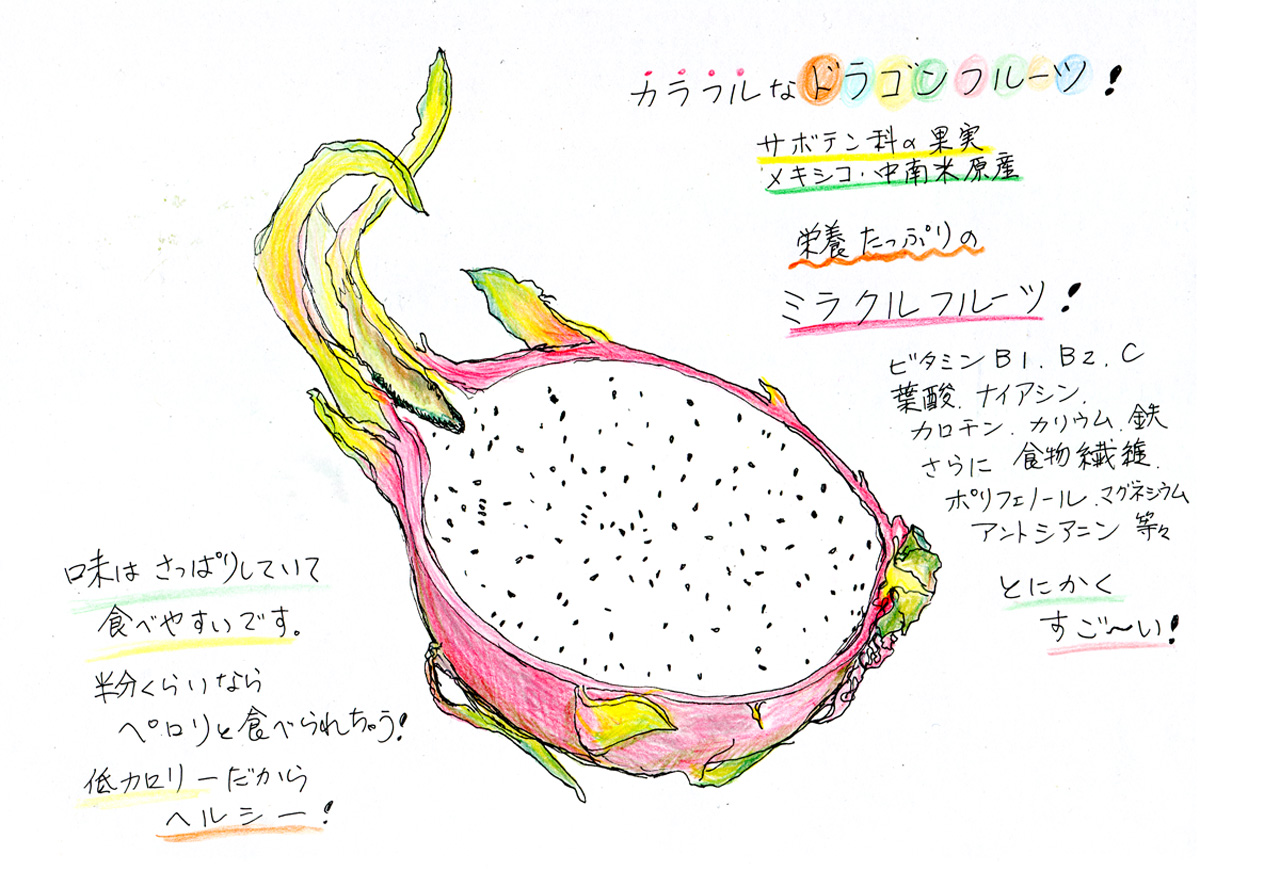 カラフルなドラゴンフルーツ!
サボテン科の果実
メキシコ・中南米原産
栄養たっぷりの
ミラクルフルーツ!
ビタミンB1、B2、C
葉酸、ナイアシン、
カロチン、カリウム、鉄
さらに 食物繊維、
ポリフェノール、マグネシウム
アントシアニン 等々
とにかく
すご〜い!
味は さっぱりしていて
食べやすいです。
半分くらいなら
ペロリと食べられちゃう!
低カロリーだから
ヘルシー!